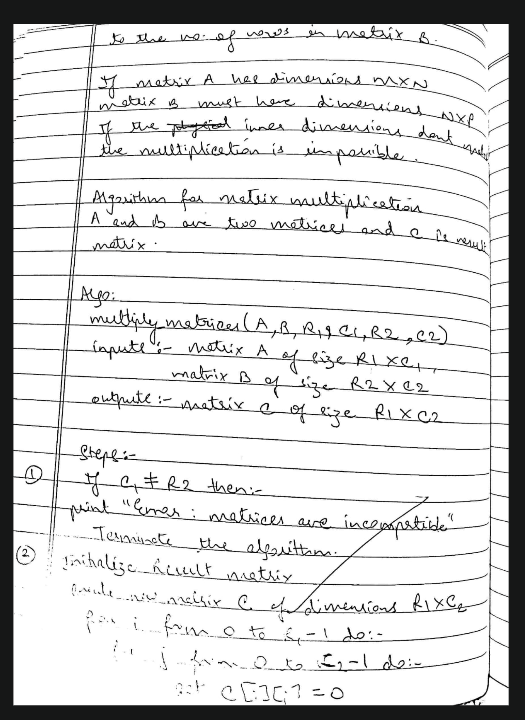 to the no. of rows in matrix B.
If matrix A has dimensions MXN
matrix B must have dimensions NXP
If the physical inner dimensions dont
the multiplication is impossible.
Algorithm for matrix multiplication
A and B are two matrices and C is result
matrix.
Algo:
multiply matrices (A, B, R1, C1, R2, C2)
inputs :- matrix A of size R1 X C1,
matrix B of size R2 X C2
outputs :- matrix C of size R1 X C2
Steps:-
① If C1 ≠ R2 then:-
print "Error : matrices are incompatible"
Terminate the algorithm.
② Initialize Result matrix
create new matrix C of dimensions R1XC2
for i from 0 to -1 do:-
for j from 0 to C2-1 do:-
set C[i][j] = 0